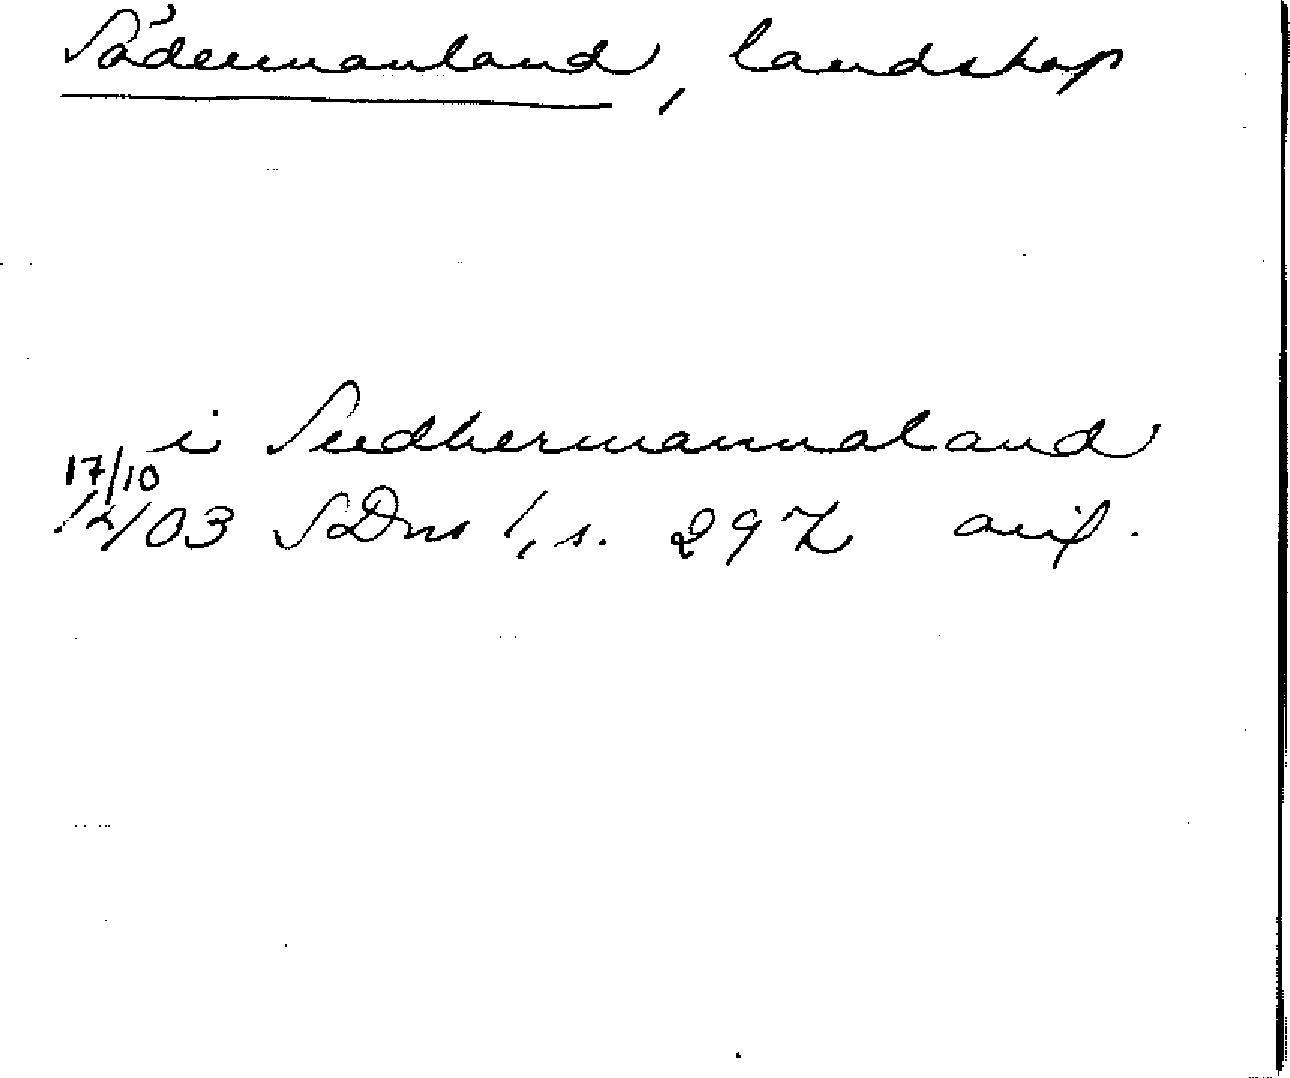 Södermanland, landskap
i Sudhermannaland
17/10
1403 SDns 1, s. 297 avf.